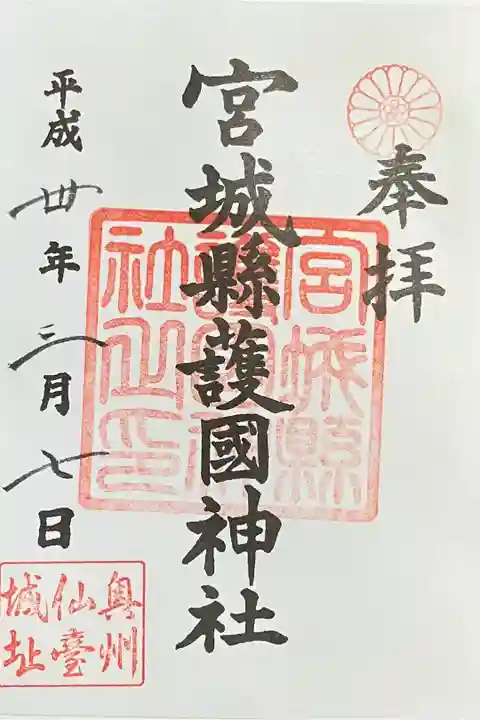 奉拝
宮城縣護國神社
宮城縣
護國神
社之印
平成卅年三月七日
奥州
仙臺
城址